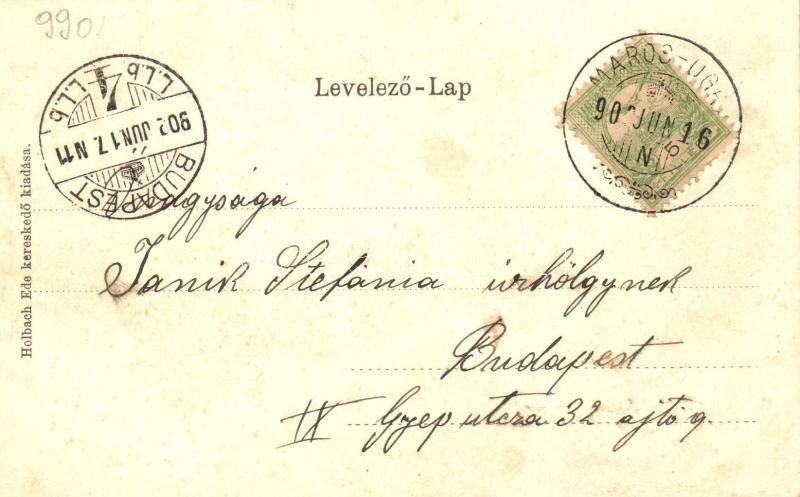 9901
Levelező-Lap
MAROS-UG
902 JUN 16
N 5
BUDAPEST
902 JUN 17. N 11
L.L.b 4 L.L.b
Holbach Ede kereskedő kiadása.
nagysága
Janik Stefánia úrhölgynek
Budapest
IX Gyep utcza 32 ajtó 9.